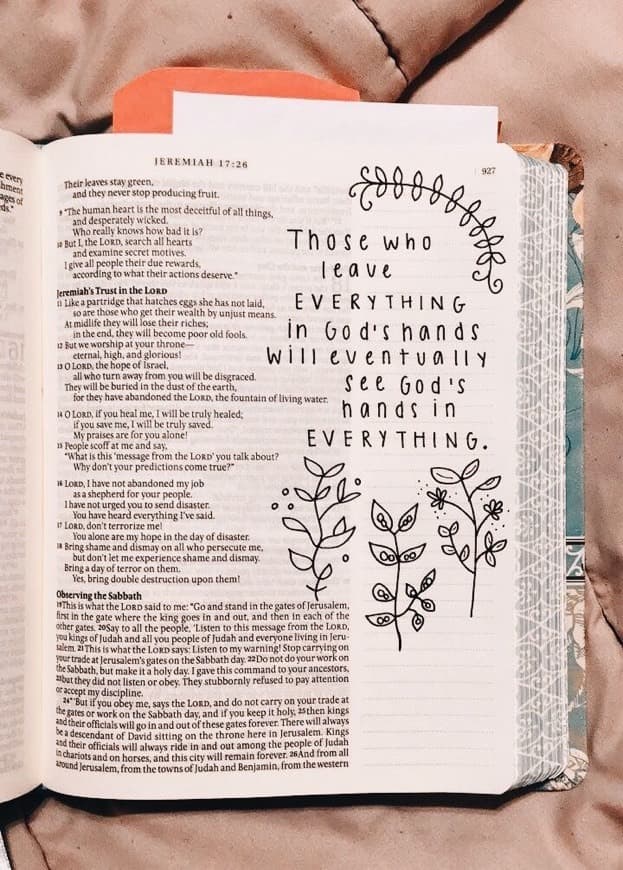 e every
hment
ages of
rds."
JEREMIAH 17:26
927
Their leaves stay green,
and they never stop producing fruit.
9 "The human heart is the most deceitful of all things,
and desperately wicked.
Who really knows how bad it is?
10 But I, the LORD, search all hearts
and examine secret motives.
I give all people their due rewards,
according to what their actions deserve."
Jeremiah's Trust in the LORD
11 Like a partridge that hatches eggs she has not laid,
so are those who get their wealth by unjust means.
At midlife they will lose their riches;
in the end, they will become poor old fools.
12 But we worship at your throne—
eternal, high, and glorious!
13 O LORD, the hope of Israel,
all who turn away from you will be disgraced.
They will be buried in the dust of the earth,
for they have abandoned the LORD, the fountain of living water.
14 O LORD, if you heal me, I will be truly healed;
if you save me, I will be truly saved.
My praises are for you alone!
15 People scoff at me and say,
"What is this 'message from the LORD' you talk about?
Why don't your predictions come true?"
16 LORD, I have not abandoned my job
as a shepherd for your people.
I have not urged you to send disaster.
You have heard everything I've said.
17 LORD, don't terrorize me!
You alone are my hope in the day of disaster.
18 Bring shame and dismay on all who persecute me,
but don't let me experience shame and dismay.
Bring a day of terror on them.
Yes, bring double destruction upon them!
Observing the Sabbath
19 This is what the LORD said to me: "Go and stand in the gates of Jerusalem,
first in the gate where the king goes in and out, and then in each of the
other gates. 20 Say to all the people, 'Listen to this message from the LORD,
you kings of Judah and all you people of Judah and everyone living in Jeru-
salem. 21 This is what the LORD says: Listen to my warning! Stop carrying on
your trade at Jerusalem's gates on the Sabbath day. 22 Do not do your work on
the Sabbath, but make it a holy day. I gave this command to your ancestors,
23 but they did not listen or obey. They stubbornly refused to pay attention
or accept my discipline.
24 "'But if you obey me, says the LORD, and do not carry on your trade at
the gates or work on the Sabbath day, and if you keep it holy, 25 then kings
and their officials will go in and out of these gates forever. There will always
be a descendant of David sitting on the throne here in Jerusalem. Kings
and their officials will always ride in and out among the people of Judah
in chariots and on horses, and this city will remain forever. 26 And from all
around Jerusalem, from the towns of Judah and Benjamin, from the western
Those who
leave
EVERYTHING
in God's hands
will eventually
see God's
hands in
EVERYTHING.